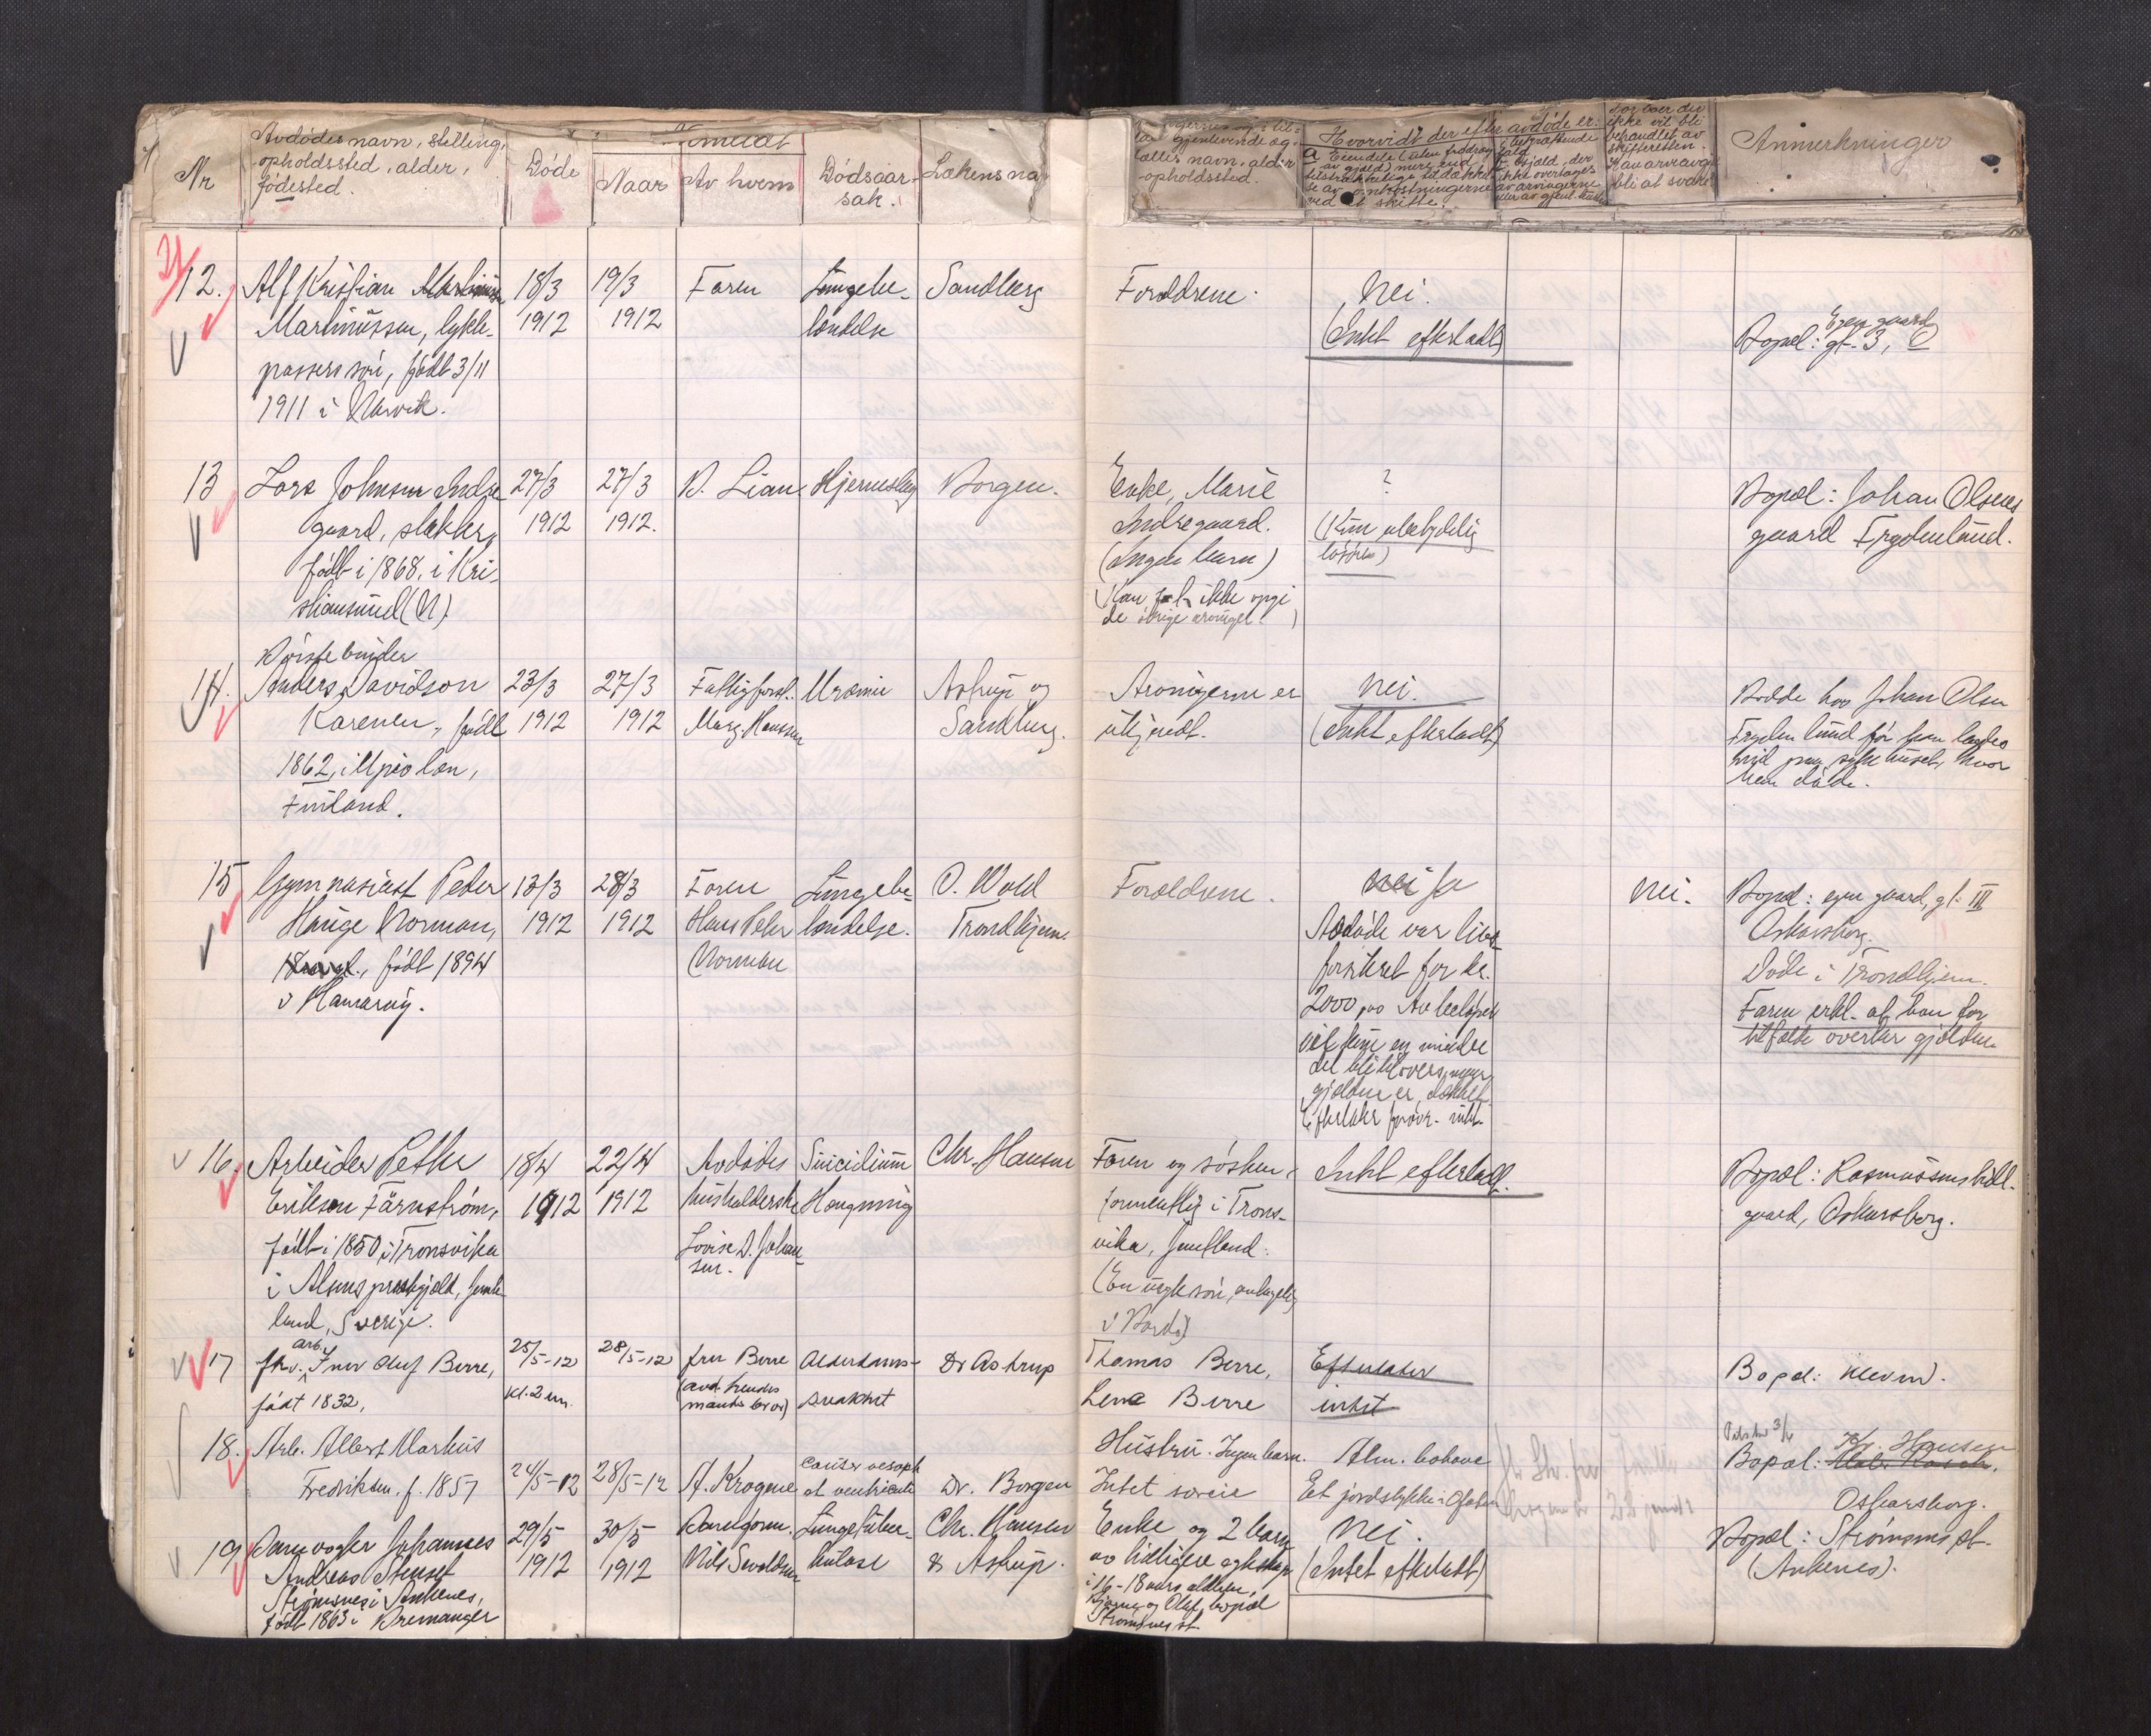 Nr
Avdødes navn, stilling,
opholdssted, alder,
fødested.
Døde
Naar
Av hvem
Dødsaar-
sak.
Lækens na
gjenlevende æg-
tælles navn, alder
opholdssted.
Hvorvidt der efter avdøde er:
ved et skifte.
ikke vil bli
behandlet av
skifteretten.
Anmerkninger
12.
Alf Kristian
Marthinussen, lykte-
passers søn, født 3/11
1911 i Narvik.
18/3
1912
19/3
1912
Faren
Lungebe-
tændelse
Sandberg
Forældrene.
Nei.
(Intet efterladt)
Egen gaard
Bopæl: gt. 3,
13
Lars Johnsen Indre-
gaard, slakter,
født i 1868. i Kri-
stiansund (N).
27/3
1912
27/3
1912.
B. Lian
Hjerneslag
Borgen.
Enke, Marie
Indregaard.
(Ingen barn)
(Kan ikke opgi
de øvrige arvinger.)
?
(Kun ubetydelig
løsøre)
Bopæl: Johan Olsens
gaard Frydenlund.
14.
Børstebinder
Anders Davidson
Karenen, født
1862, i
Finland.
23/3
1912
27/3
1912
Fattigforst.
Marg. Hanssen
Uræmie
Astrup og
Sandberg.
Arvingerne er
ukjendt.
Nei.
(Intet efterladt)
Bodde hos Johan Olsen
Frydenlund før han lagdes
ind paa sykehuset, hvor
han døde.
15
Gymnasiast Peder
Hauge Norman,
født 1894
i Hamarøy.
13/3
1912
28/3
1912
Faren
Hans Peter
Normann
Lungebe-
tændelse.
O. Wold
Trondhjem.
Forældrene.
nei ja
Avdøde var livs-
forsikret for kr.
2000,00 Av beløpet
vil
det bli tilovers, naar
gjælden er dækket.
Efterlater forøvr. intet.
Nei.
Bopæl: egen gaard, gt. III
Oskarsborg.
Døde i Trondhjem.
Faren erkl. at han for
tilfælde overtar gjælden
16.
Arbeider Petter
Erikson Färnström,
født i 1850 i Tronsvika
i Alsens prestgjeld, Jemt-
land, Sverige.
18/4
1912
22/4
1912
Avdødes
husholderske
Lovise D. Johan-
sen.
Suicidium
Hængning
Chr. Hansen
Faren og søsken,
formentlig i Trons-
vika, Jemtland.
(En uegte søn, antagelig
i Bardo)
Intet efterladt.
Bopæl: Rasmussens
gaard, Oskarsborg.
17
fhv. arb. Iver Oluf Berre,
født 1832,
25/5-12
Kl. 2 em.
28/5-12
fru Berre
(avd. hendes
mands bror)
Alderdoms-
svakhet
Dr Astrup
Thomas Berre,
Lene Berre
Efterlater
intet
Bopæl: Kleven.
18.
Arb. Albert Markus
Fredriksen. f. 1857
24/5-12
28/5-12
A. Krogene
cancer oesoph
et ventriculi
Dr. Borgen
Hustru. Ingen barn.
Intet særeie
Alm. bohave
Et jordstykke i Ofoten
Bopæl: Kr. Hansen
Oskarsborg.
19
Banevogter Johannes
Andreas Stenset
Strømsnes i Ankenes,
født 1863 i Bremanger
29/5
1912
30/5
1912
Baneform.
Nils Sevaldsen
Lungetuber-
kulose
Chr. Hansen
& Astrup.
Enke og 2 barn
av tidligere egteskap
i 16-18 aars alderen,
Bjarne og Olaf, bopæl
Strømsnes st.
Nei.
(Intet efterladt)
Bopæl: Strømsnes st.
(Ankenes).